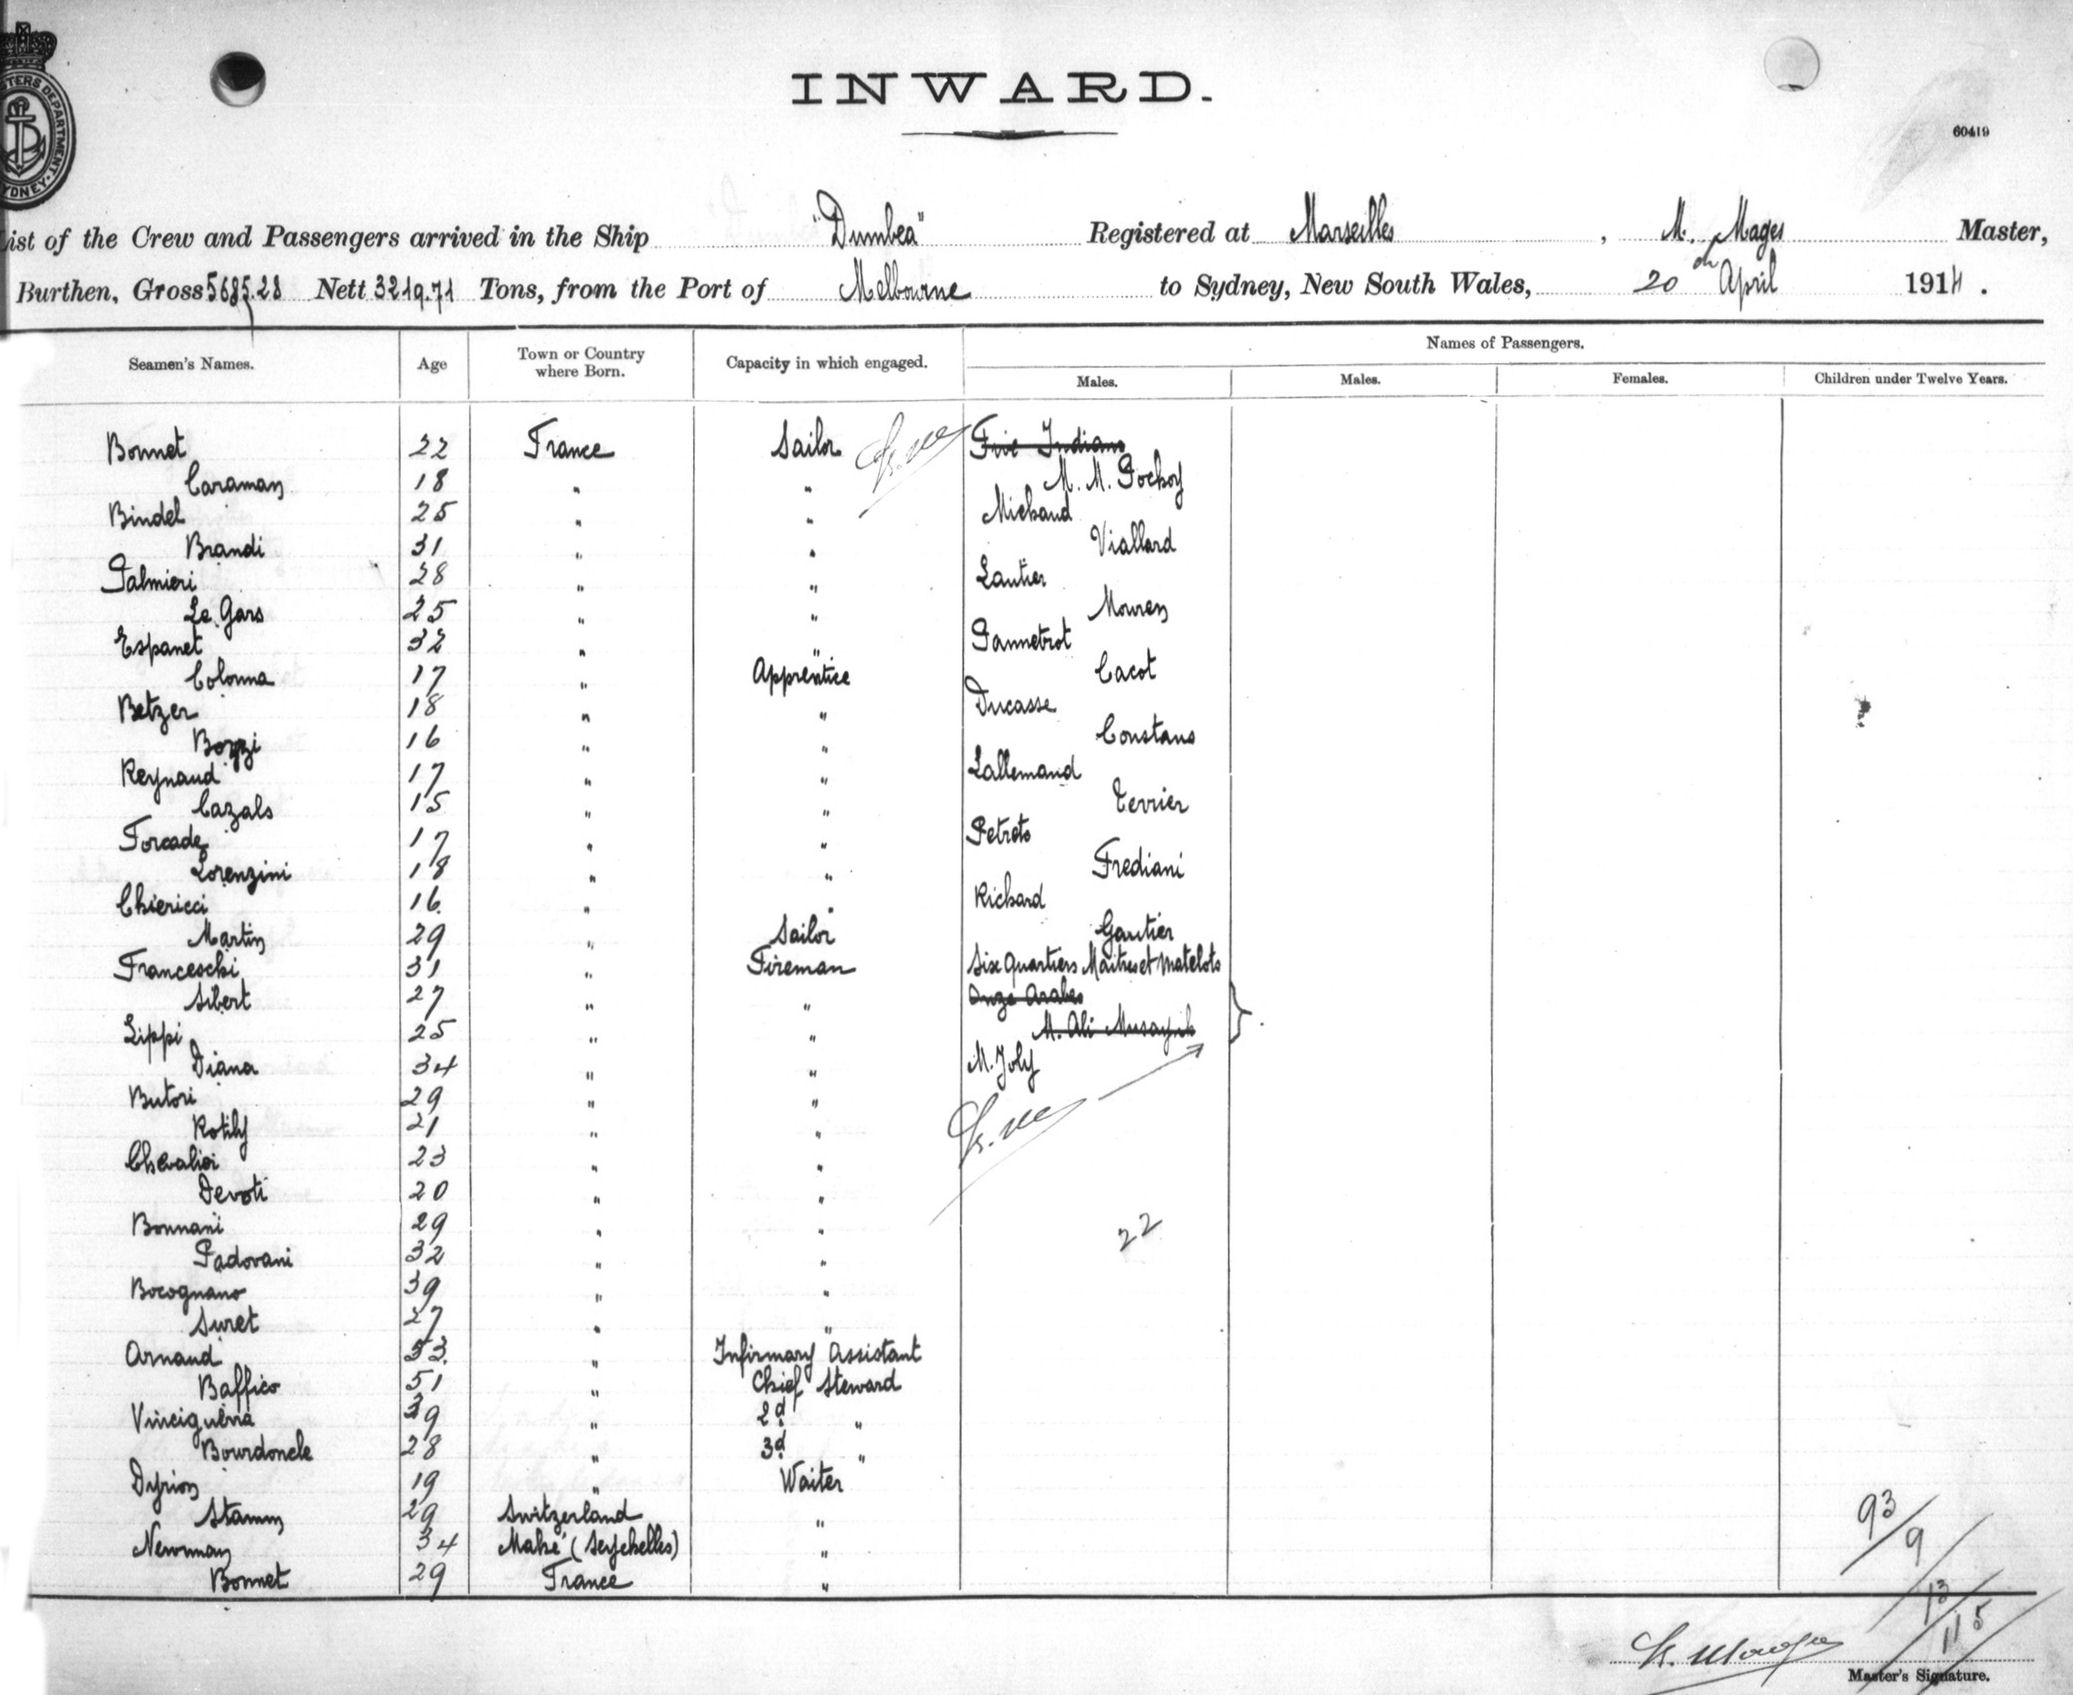 INWARD.
60419
STERS DEPARTMENT. SYDNEY.
List of the Crew and Passengers arrived in the Ship "Dumbea" Registered at Marseilles, M. Mages Master,
Burthen, Gross 5685.28 Nett 3219.71 Tons, from the Port of Melbourne to Sydney, New South Wales, 20th April 1914.
Names of Passengers.
Seamen's Names. Age Town or Country where Born. Capacity in which engaged. Males. Males. Females. Children under Twelve Years.
Bonnet 22 France Sailor Five Indians
Caraman 18 " " M. M. Pockoy
Bindel 25 " " Michaud
Brandi 31 " " Viallard
Palmieri 28 " " Lautier
Le Gars 25 " " Mouren
Espanet 32 " " Pannetrot
Colonna 17 " Apprentice Cacot
Betzer 18 " " Ducasse
Bozzi 16 " " Constans
Reynaud 17 " " Lallemand
Cazals 15 " " Terrier
Forcade 17 " " Petreto
Lorenzini 18 " " Frediani
Chiericci 16 " " Richard
Martin 29 " Sailor Gautier
Franceschi 31 " Fireman Six Quartiers Maitres et matelots
Sibert 27 " " Onze Arabes
Lippi 25 " " M. Ali
Diana 34 " " M. Joly
Butori 29 " "
Rotily 21 " "
Chevalier 23 " "
Devoti 20 " "
Bonnani 29 " " 22
Padovani 32 " "
Bocognano 39 " "
Suret 27 " "
Arnaud 53 " Infirmary Assistant
Baffico 51 " Chief Steward
Vinciguerra 39 " 2d "
Bourdoncle 28 " 3d "
Dyrion 19 " Waiter
Stamm 29 Switzerland "
Newman 34 Mahé (Seychelles) "
Bonnet 29 France "
93
9
13
115
Master's Signature.